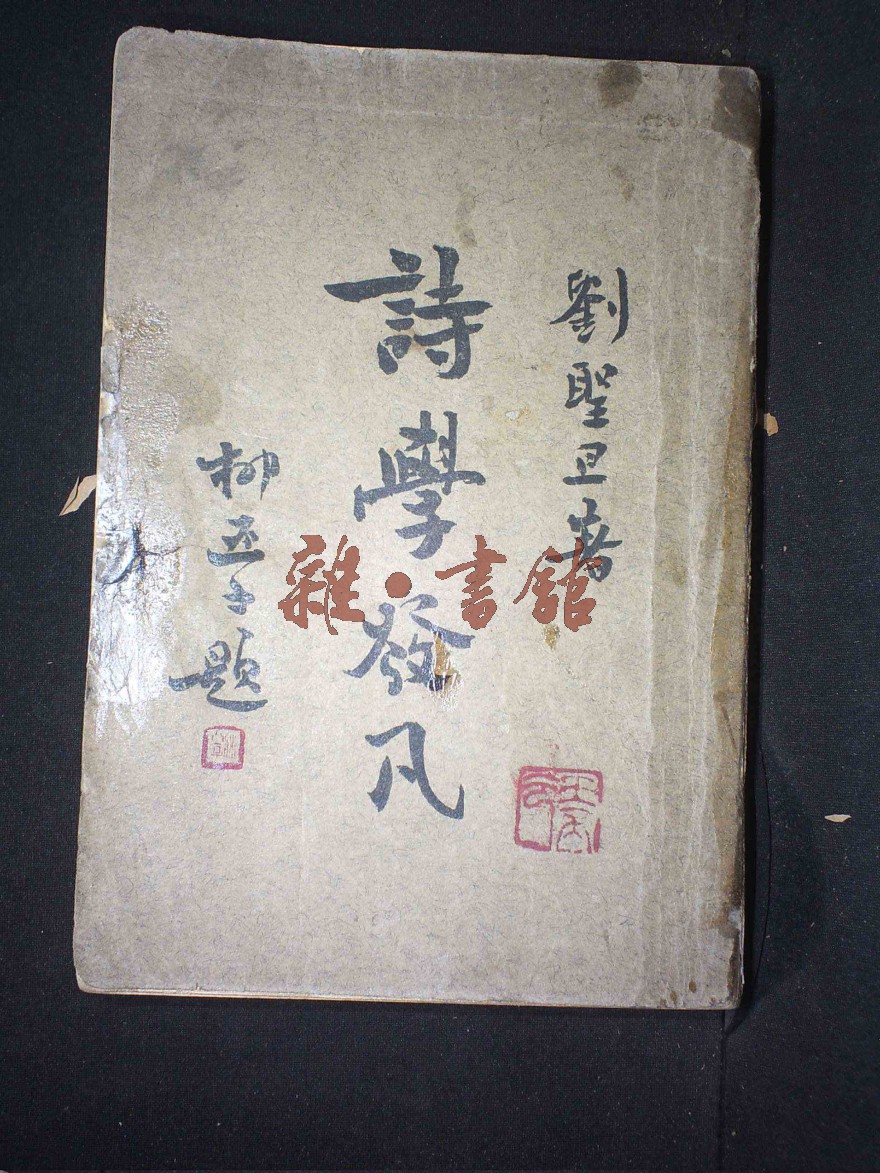 劉聖旦著
詩學發凡
柳亞子題
雜·書館